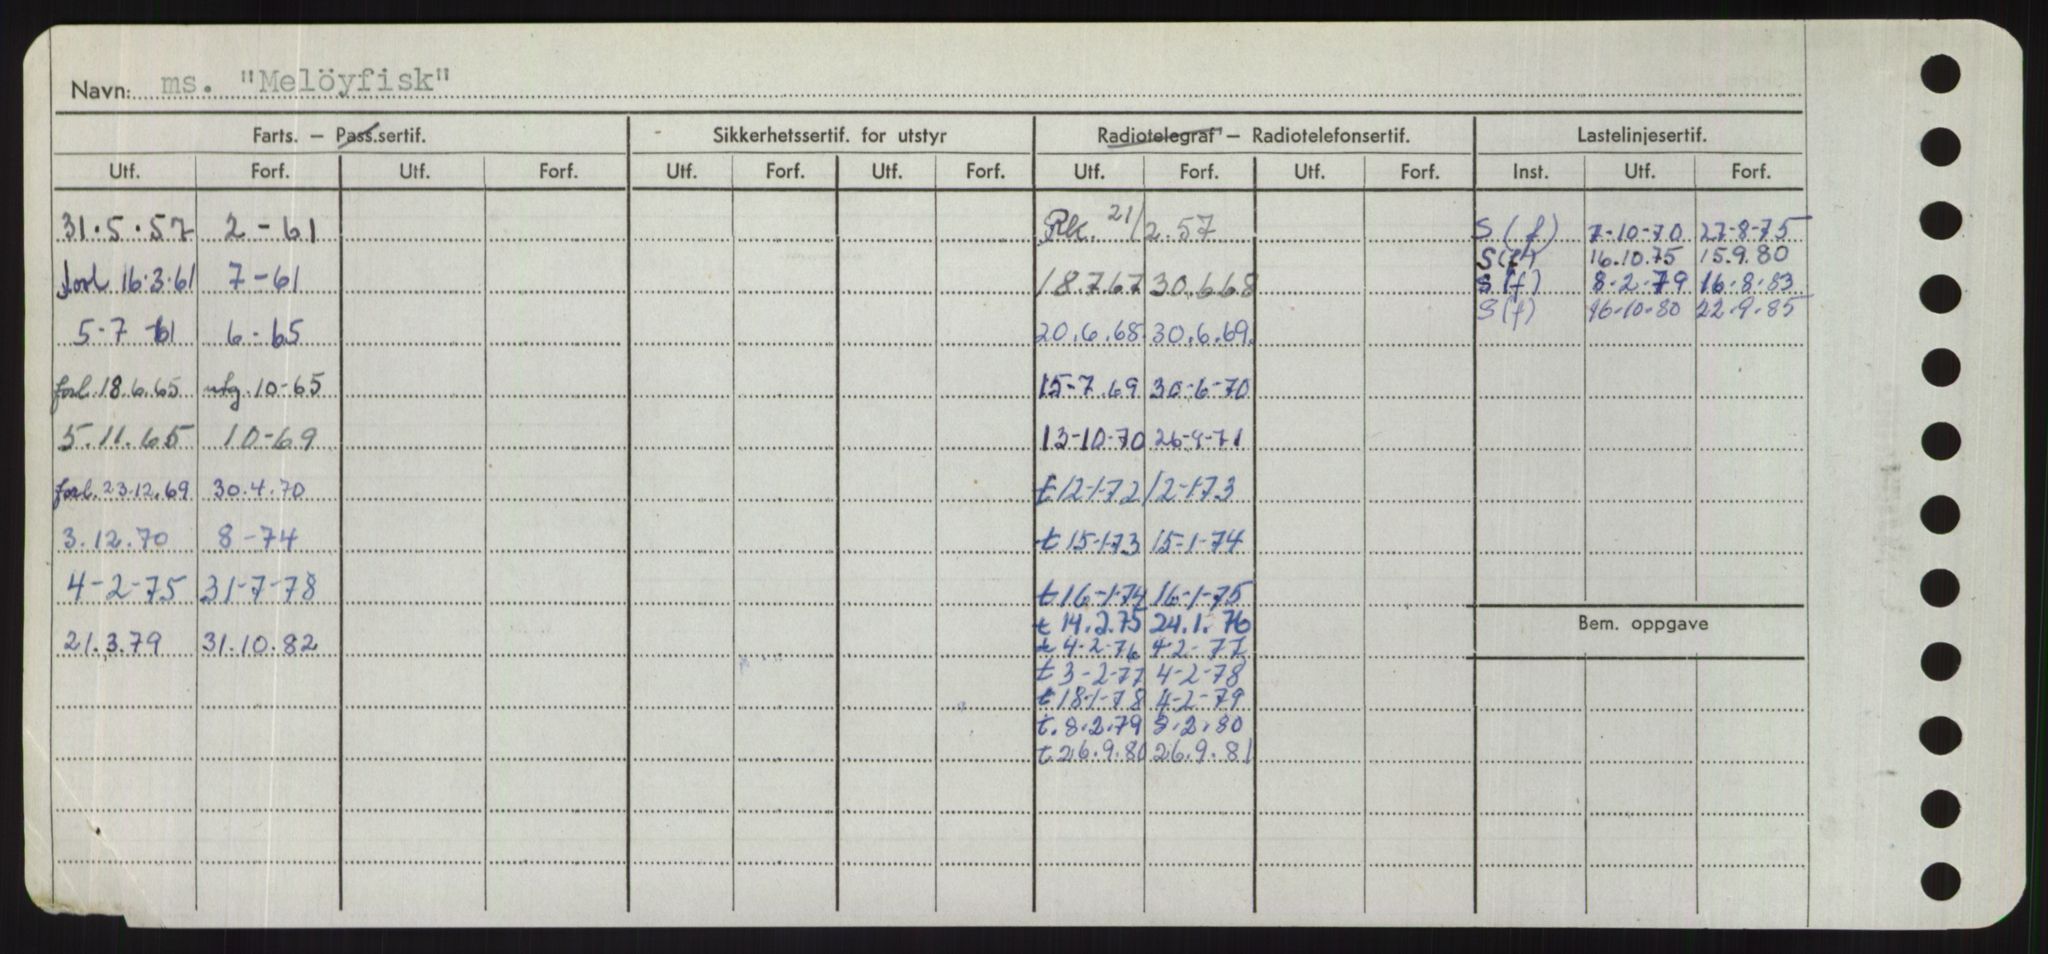 Navn: ms. "Melöyfisk"
Farts. – Pass.sertif. Sikkerhetssertif. for utstyr Radiotelegraf – Radiotelefonsertif. Lastelinjesertif.
Utf. Forf. Utf. Forf. Utf. Forf. Utf. Forf. Utf. Forf. Utf. Forf. Inst. Utf. Forf.
31.5.57 2-61
forl 16.3.61 7-61
5-7 61 6-65
forl. 18.6.65 utg. 10-65
5.11.65 10-69
forl. 23.12.69 30.4.70
3.12.70 8-74
4-2-75 31-7-78
21.3.79 31.10.82
Rk. 21/2.57
18.7.67 30.6.68
20.6.68 30.6.69.
15-7.69 30-6-70
13-10-70 26-9-71
t 12-1-72 12-1-73
t 15-1-73 15-1-74
t 16-1-74 16-1-75
t 14.2.75 24.1.76
t 4-2-76 4-2-77
t 3-2-77 4-2-78
t 18-1-78 4-2-79
t. 8.2.79 8.2.80
t 26.9.80 26.9.81
S (f) 7-10-70 27-8-75
S(f) 16.10.75 15.9.80
S (f) 8-2-79 16-8-83
S (f) 16-10-80 22-9-85
Bem. oppgave